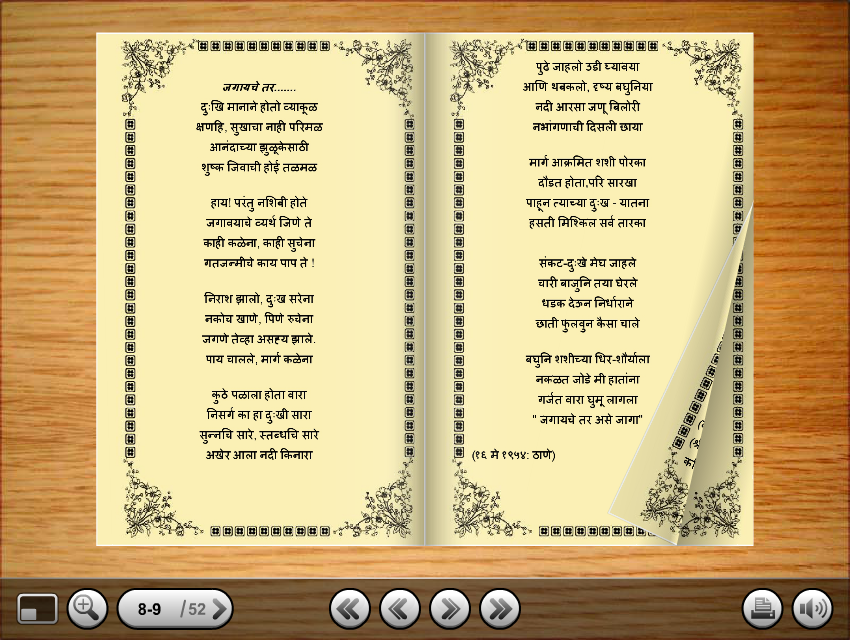 जगायचे तर.......
दुःखि मानाने होतो व्याकूळ
क्षणहि, सुखाचा नाही परिमळ
आनंदाच्या झुळूकेसाठी
शुष्क जिवाची होई तळमळ
हाय! परंतु नशिबी होते
जगावयाचे व्यर्थ जिणे ते
काही कळेना, काही सुचेना
गतजन्मीचे काय पाप ते !
निराश झालो, दुःख सरेना
नकोच खाणे, पिणे रुचेना
जगणे तेव्हा असह्य झाले.
पाय चालले, मार्ग कळेना
कुठे पळाला होता वारा
निसर्ग का हा दुःखी सारा
सुन्नचि सारे, स्तब्धचि सारे
अखेर आला नदी किनारा
पुढे जाहलो उडी घ्यावया
आणि थबकलो, दृष्य बघुनिया
नदी आरसा जणू बिलोरी
नभांगणाची दिसली छाया
मार्ग आक्रमित शशी पोरका
दौडत होता,परि सारखा
पाहून त्याच्या दुःख - यातना
हसती मिश्किल सर्व तारका
संकट-दुःखे मेघ जाहले
चारी बाजुनि तया घेरले
धडक देऊन निर्धाराने
छाती फुलवुन कैसा चाले
बघुनि शशीच्या धिर-शौर्याला
नकळत जोडे मी हातांना
गर्जत वारा घुमू लागला
" जगायचे तर असे जागा"
(१६ मे १९५४: ठाणे)
8-9 / 52